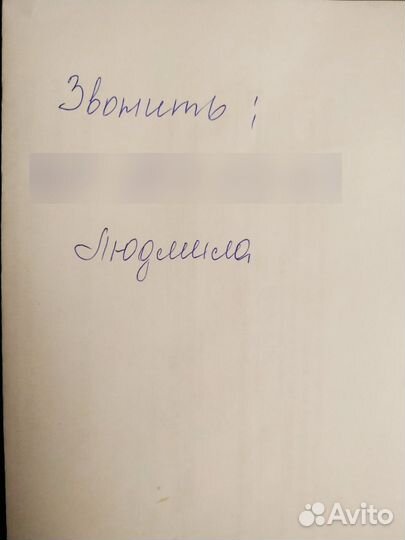 Звонить:
Людмила
Avito